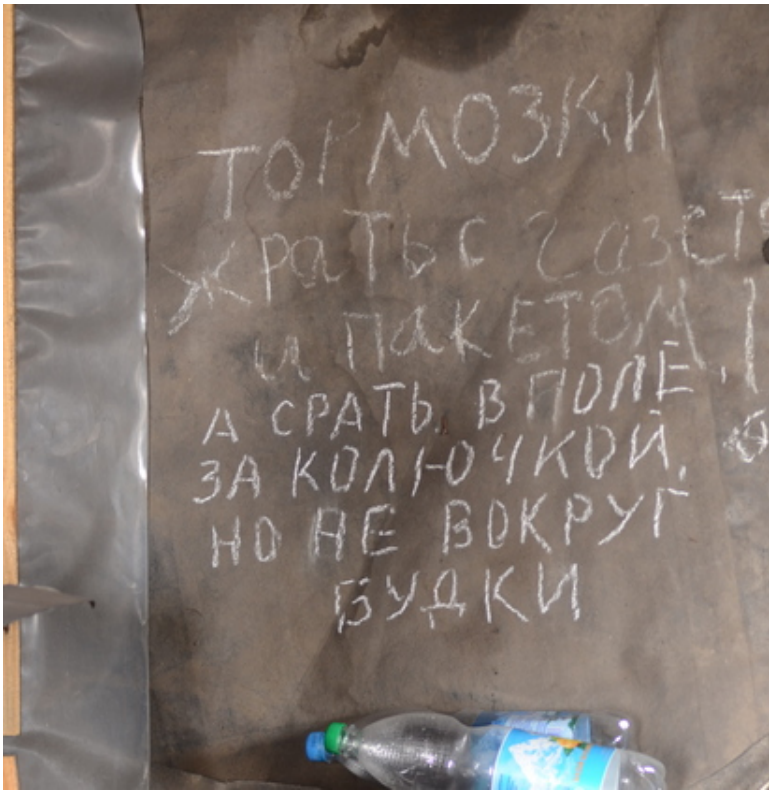 ТОРМОЗКИ
ЖРАТЬ С
и ПаКЕТОМ!
А СРАТЬ В ПОЛЕ,
ЗА КОЛЮЧКОЙ,
НО НЕ ВОКРУГ
БУДКИ